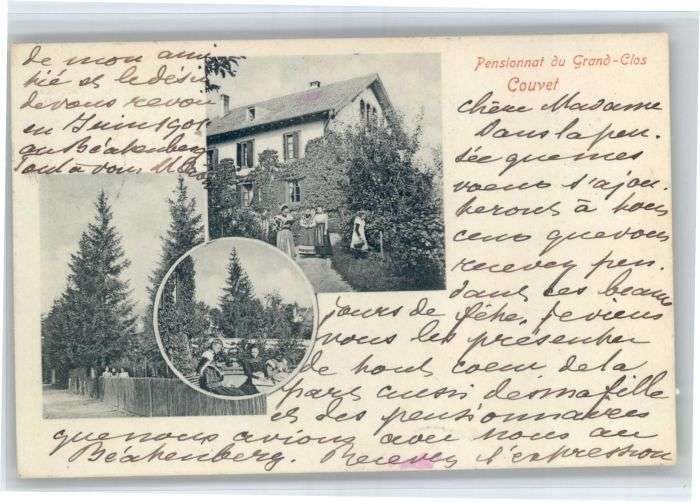 Pensionnat du Grand-Clos
Couvet
chère Madame
Dans la pen-
sée que mes
voeux s'ajou-
teront à tous
ceux que vous
recevez pen-
dant ces beaux
jours de fête, je viens
vous les présenter
de tout coeur de la
part aussi de ma fille
et des pensionnaires
que nous avions avec nous au
Béatenberg. Recevez l'expression
de mon ami
tié et le désir
de vous revoir
en Juin 1901
au Béatenberg
tout à vous